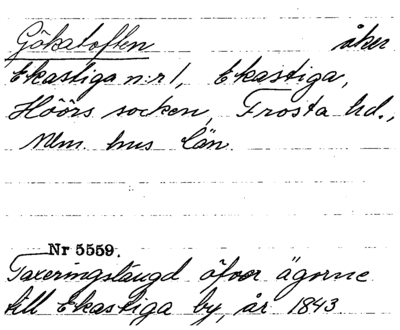 Gökatoften åker
Ekastiga n:r 1, Ekastiga,
Höörs socken, Frosta hd.,
Mlm. hus län.
Nr 5559.
Taxeringslängd öfver ägorne
till Ekastiga by, år 1843